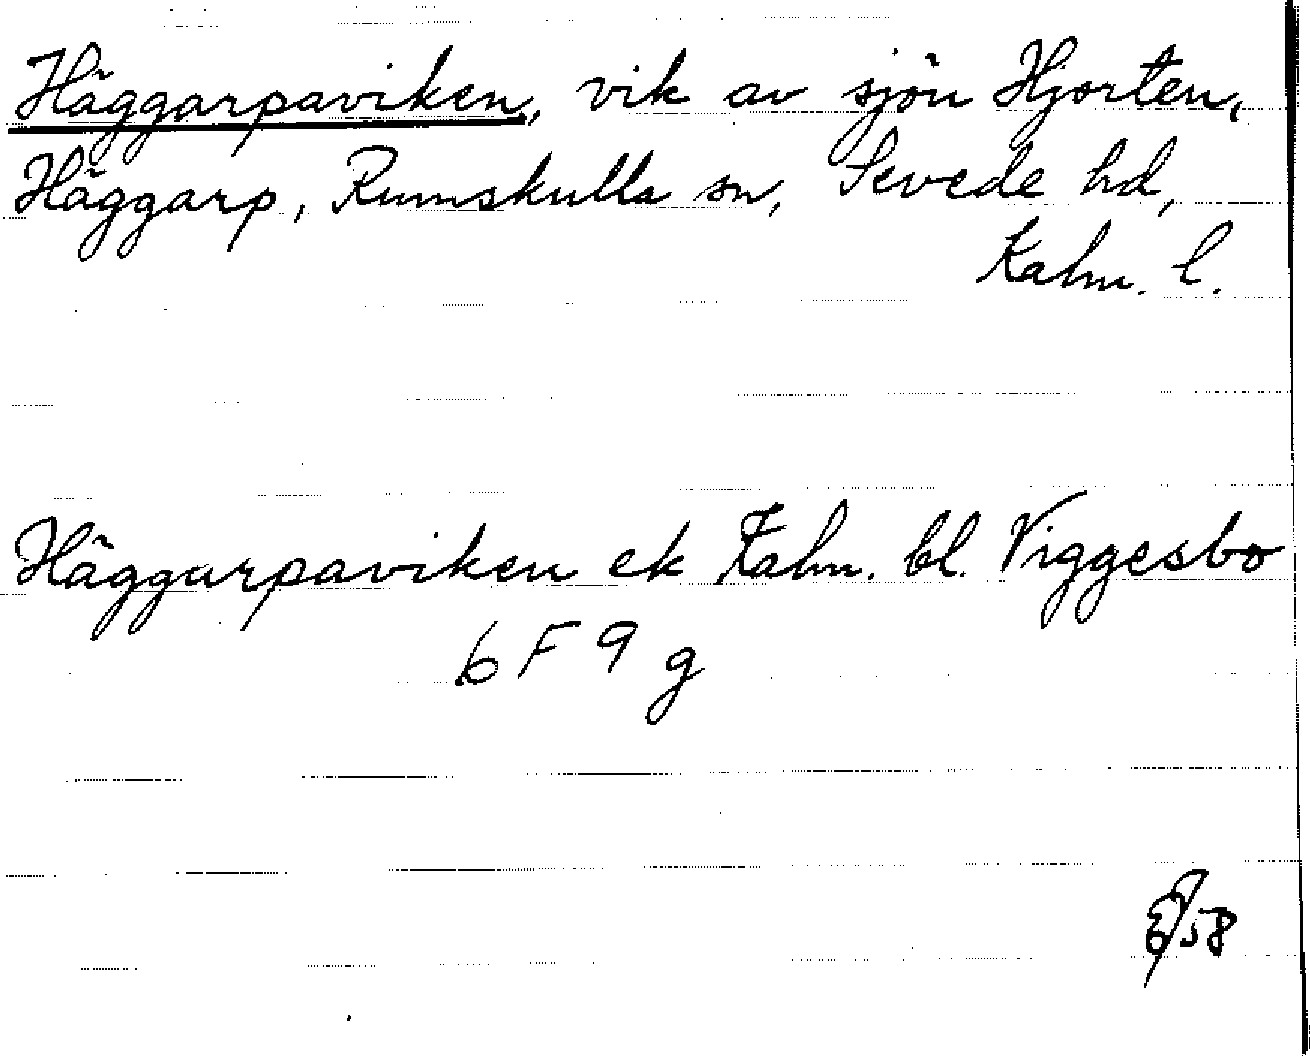 Häggarpaviken, vik av sjön Hjorten,
Häggarp, Rumskulla sn, Sevede hd,
Kalm. l.
Häggarpaviken ek Kalm. bl. Viggesbo
6 F 9 g
58